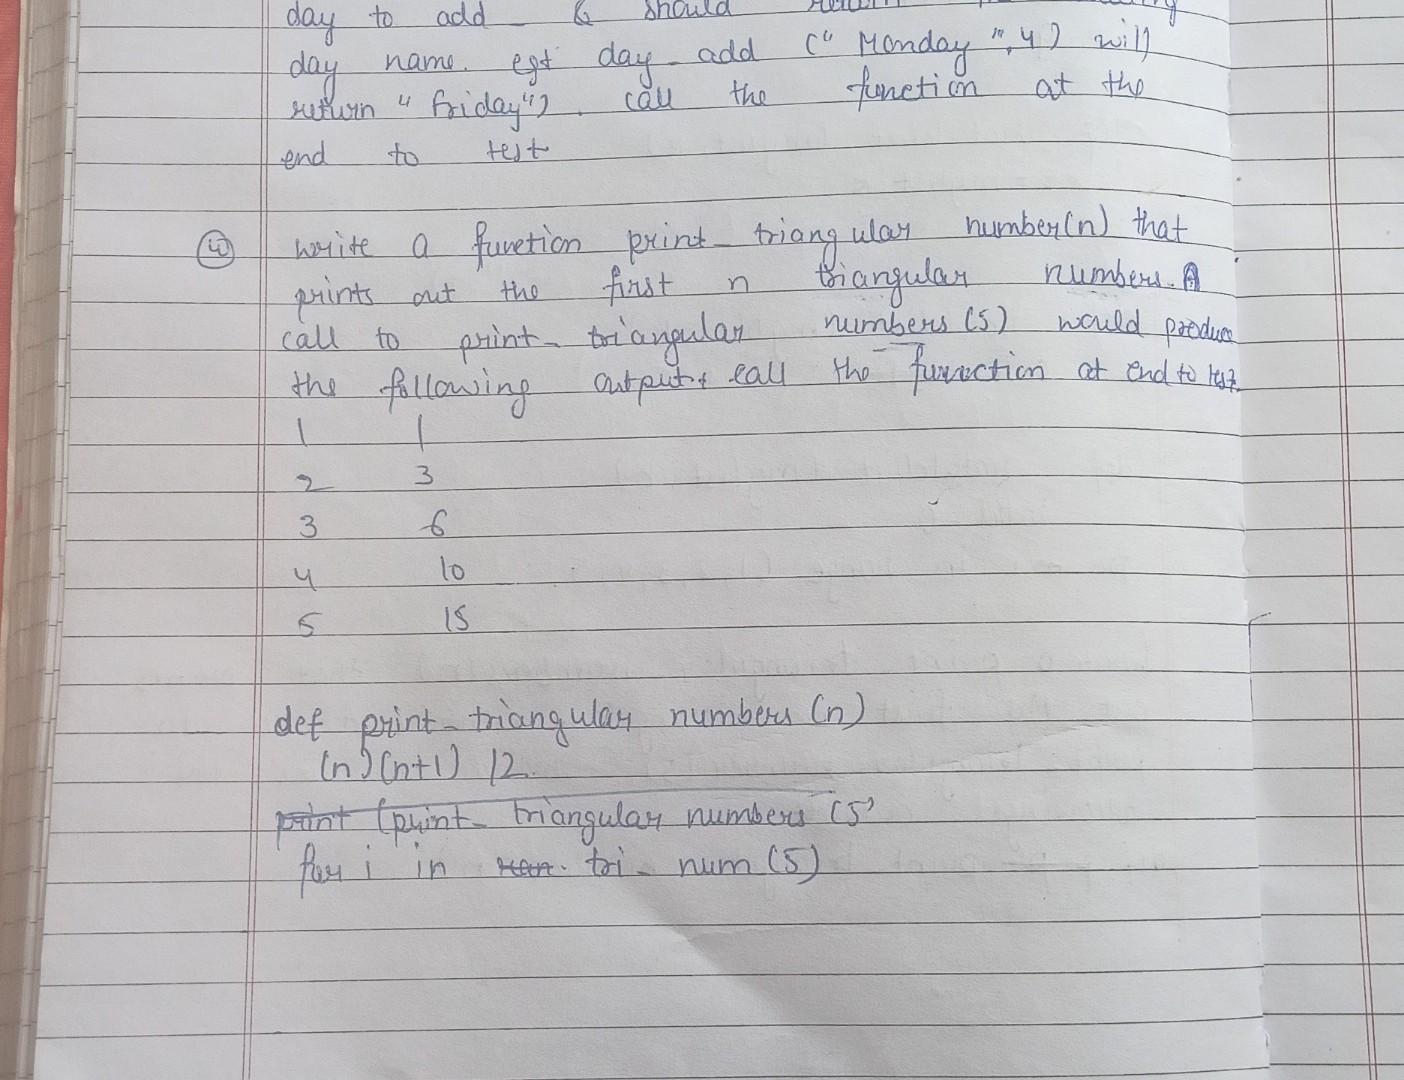 day to add & should
day name. egt day_add ("Monday", 4) will
return "friday") . call the function at the
end to test
④ write a function print_triangular number(n) that
prints out the first n triangular numbers. A
call to print_triangular numbers (5) would produce
the following output & call the function at end to test
1 1
2 3
3 6
4 10
5 15
def print_triangular numbers (n)
(n)(n+1) /2.
print (print_triangular numbers (5)
for i in ran. tri_num (5)